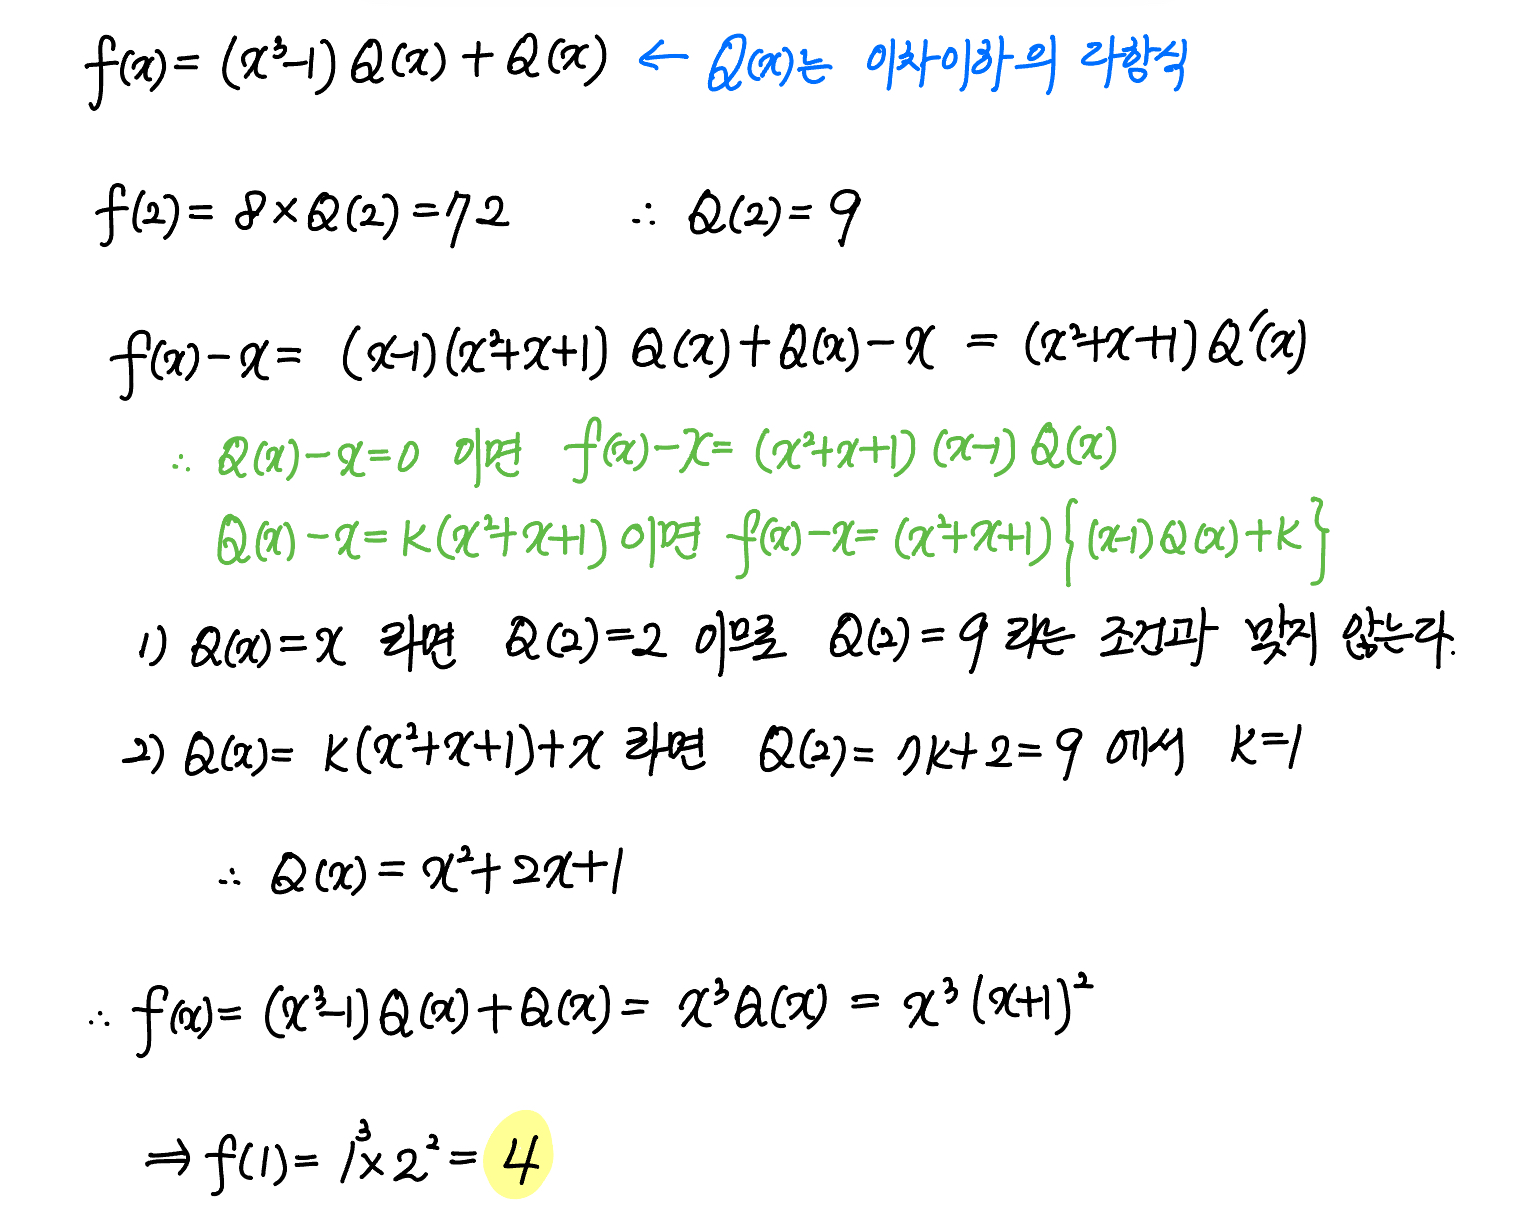 f(x) = (x³-1) Q(x) + Q(x) ← Q(x)는 이차이하의 다항식
f(2) = 8 × Q(2) = 72 ∴ Q(2) = 9
f(x) - x = (x-1)(x²+x+1) Q(x) + Q(x) - x = (x²+x+1) Q′(x)
∴ Q(x) - x = 0 이면 f(x) - x = (x²+x+1)(x-1) Q(x)
Q(x) - x = k(x²+x+1) 이면 f(x) - x = (x²+x+1){(x-1)Q(x)+k}
1) Q(x) = x 라면 Q(2) = 2 이므로 Q(2) = 9 라는 조건과 맞지 않는다.
2) Q(x) = k(x²+x+1)+x 라면 Q(2) = 7k+2 = 9 에서 k=1
∴ Q(x) = x²+2x+1
∴ f(x) = (x³-1) Q(x) + Q(x) = x³Q(x) = x³(x+1)²
⇒ f(1) = 1³×2² = 4